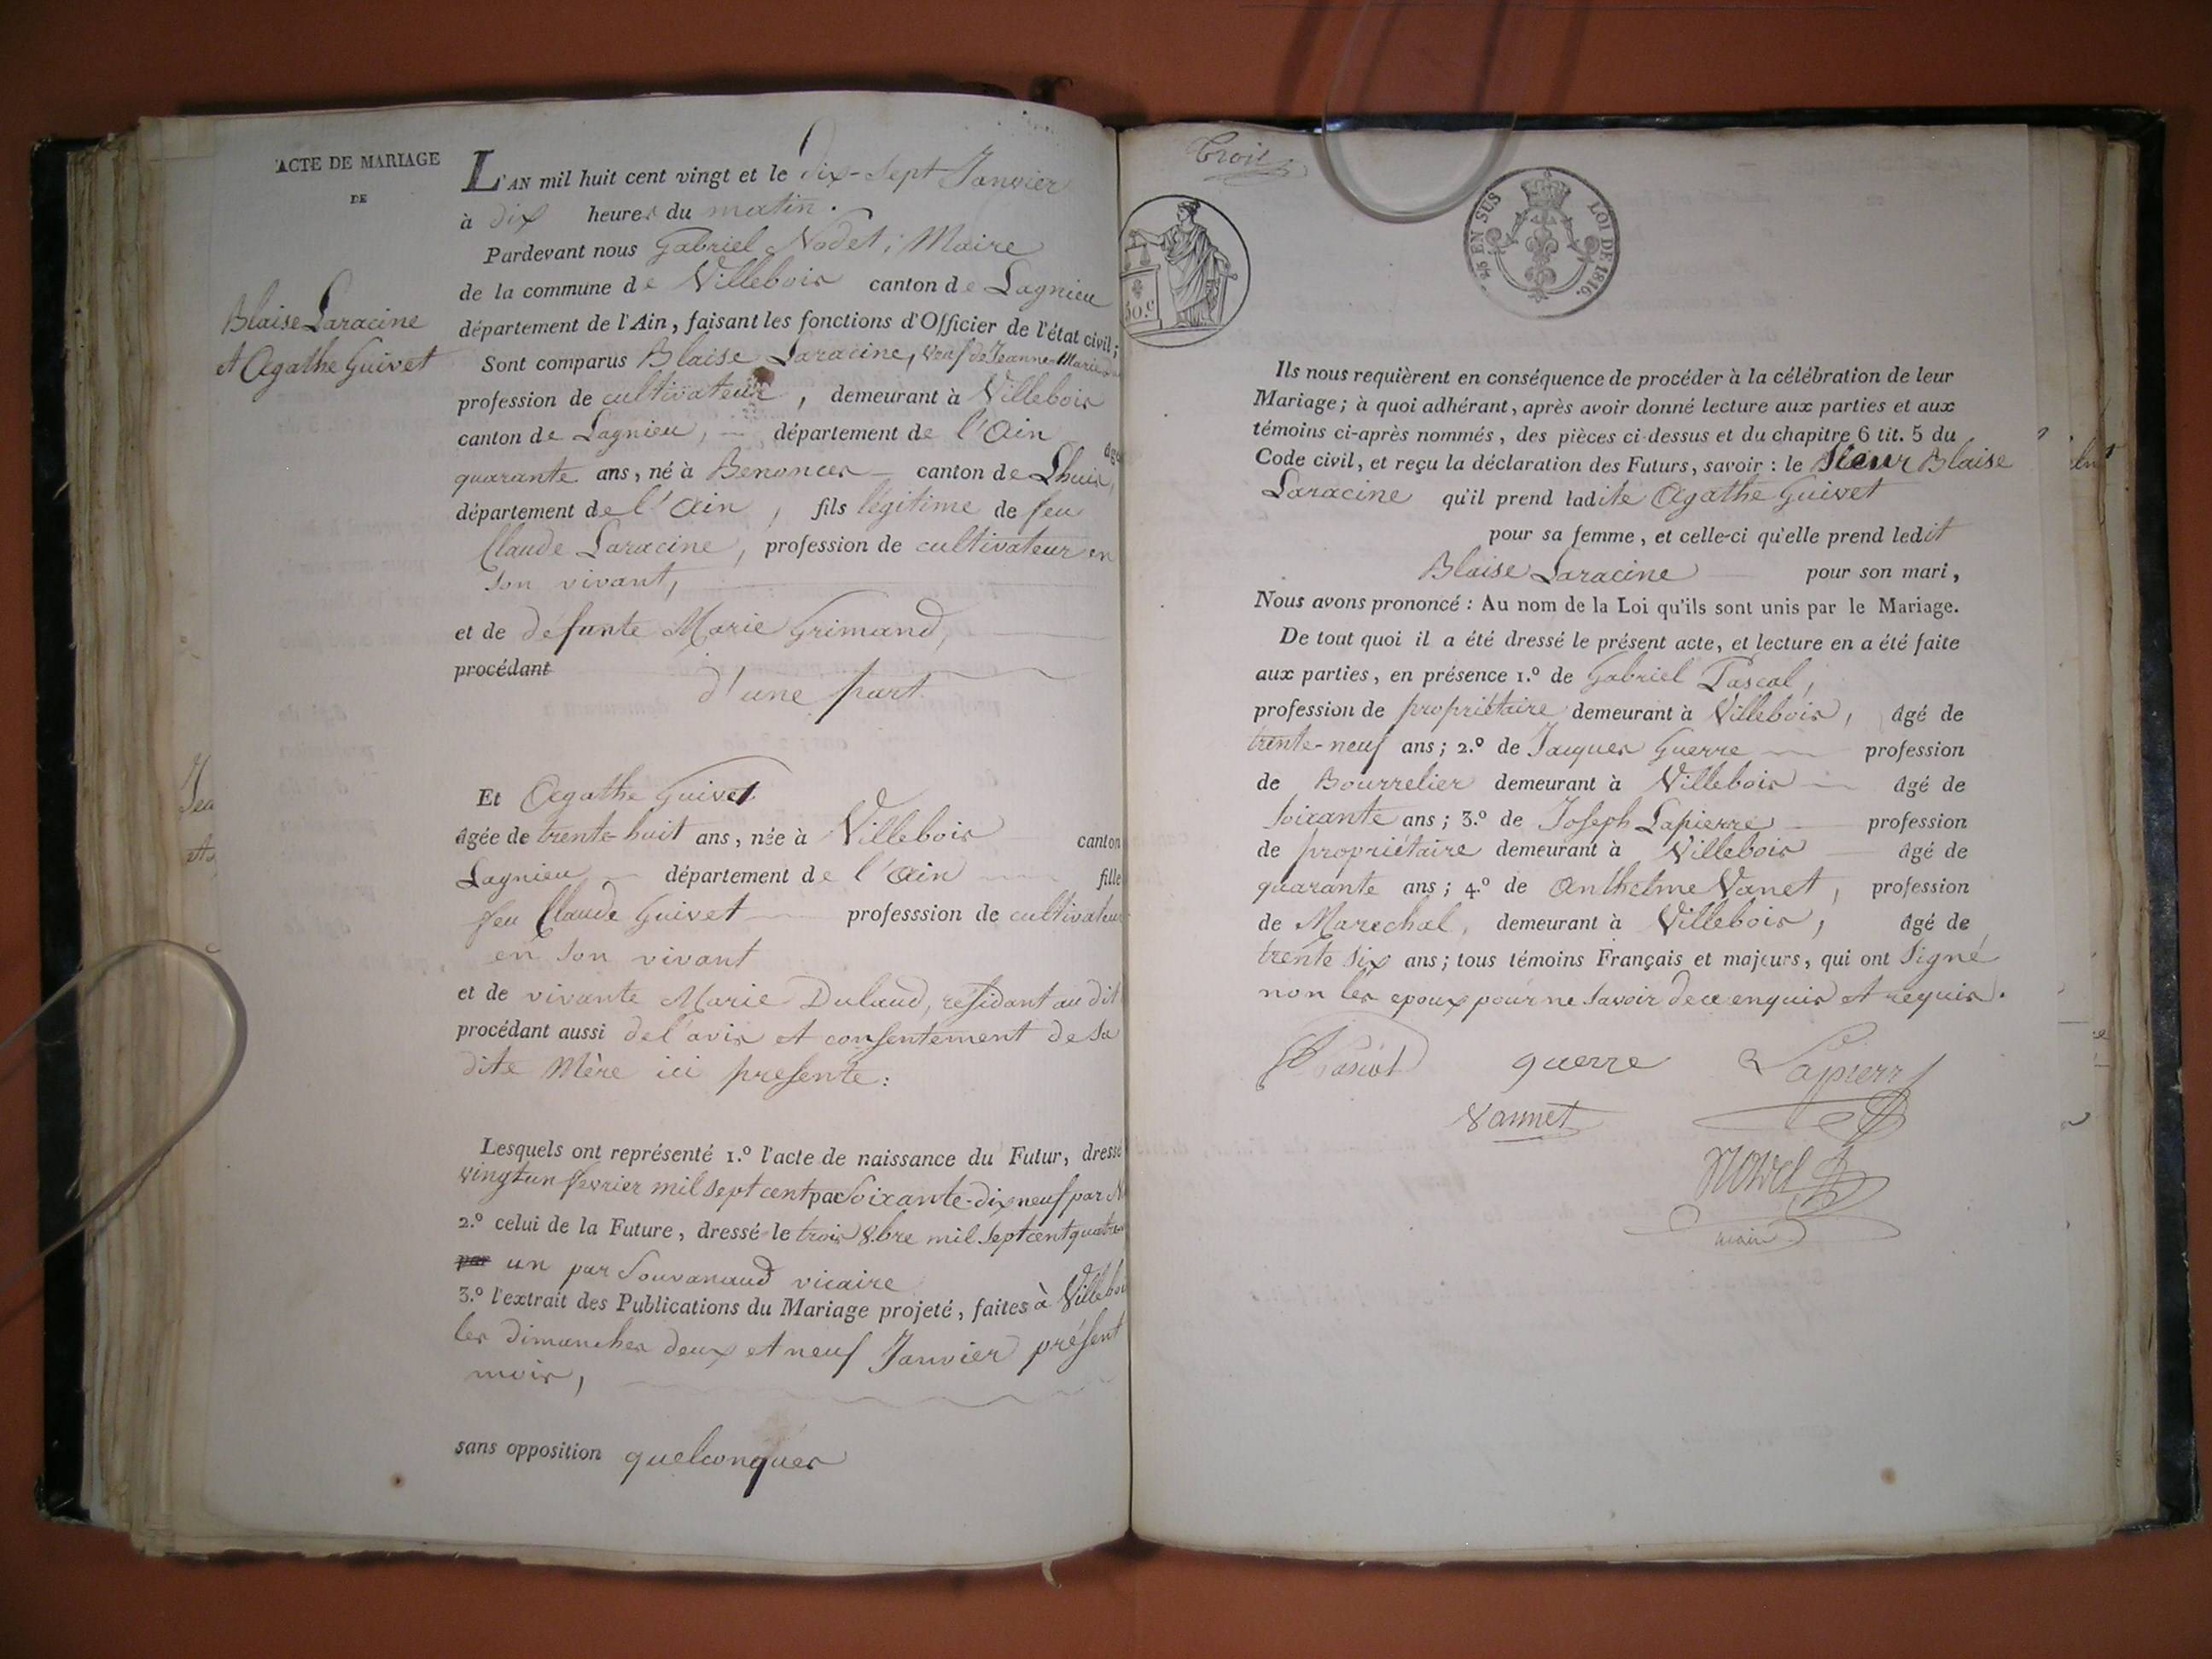 ACTE DE MARIAGE
DE
Blaise Laracine
et Agathe Guivet
L'AN mil huit cent vingt et le dix-sept Janvier
à dix heures du matin.
Pardevant nous Gabriel Nodet, Maire
de la commune de Villebois canton de Lagnieu
département de l'Ain, faisant les fonctions d'Officier de l'état civil;
Sont comparus Blaise Laracine, veuf de Jeanne-Marie
profession de cultivateur, demeurant à Villebois
canton de Lagnieu, département de l'Ain âgé
quarante ans, né à Benonces canton de Lhuis,
département de l'Ain, fils légitime de feu
Claude Laracine, profession de cultivateur en
son vivant,
et de défunte Marie Grimand,
procédant
d'une part.
Et Agathe Guivet
âgée de trente-huit ans, née à Villebois canton
Lagnieu département de l'Ain fille
feu Claude Guivet professsion de cultivateur
en son vivant
et de vivante Marie Dulaud, résidant au dit
procédant aussi de l'avis et consentement de sa
dite Mère ici présente:
Lesquels ont représenté 1.º l'acte de naissance du Futur, dressé
vingt un fevrier mil sept cent par soixante-dix neuf par
2.º celui de la Future, dressé le trois 8.bre mil sept cent quatre
par un par Souvanaud vicaire
3.º l'extrait des Publications du Mariage projeté, faites à Villebois
les dimanches deux et neuf Janvier présent
mois,
sans opposition quelconques
Trois
50 c
25 EN SUS LOI DE 1816.
Ils nous requièrent en conséquence de procéder à la célébration de leur
Mariage; à quoi adhérant, après avoir donné lecture aux parties et aux
témoins ci-après nommés, des pièces ci-dessus et du chapitre 6 tit. 5 du
Code civil, et reçu la déclaration des Futurs, savoir: le sieur Blaise
Laracine qu'il prend ladite Agathe Guivet
pour sa femme, et celle-ci qu'elle prend ledit
Blaise Laracine pour son mari,
Nous avons prononcé: Au nom de la Loi qu'ils sont unis par le Mariage.
De tout quoi il a été dressé le présent acte, et lecture en a été faite
aux parties, en présence 1.º de Gabriel Pascal,
profession de propriétaire demeurant à Villebois, âgé de
trente-neuf ans; 2.º de Jacques Guerre profession
de Bourrelier demeurant à Villebois âgé de
soixante ans; 3.º de Joseph Lapierre profession
de propriétaire demeurant à Villebois âgé de
quarante ans; 4.º de Anthelme Vanet, profession
de Marechal, demeurant à Villebois, âgé de
trente six ans; tous témoins Français et majeurs, qui ont signé
non les epoux pour ne savoir de ce enquis et requis.
Pascal guerre Lapierre
vannet
Nodet
maire